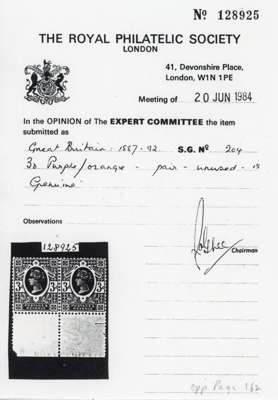 No 128925
THE ROYAL PHILATELIC SOCIETY
LONDON
41, Devonshire Place,
London, W1N 1PE
Meeting of 20 JUN 1984
In the OPINION of The EXPERT COMMITTEE the item
submitted as
Great Britain 1887-92 S.G. No 204
3d Purple/orange - pair - unused - is
Genuine
Observations
Chairman
128925
3 3 3 3
opp Page 162